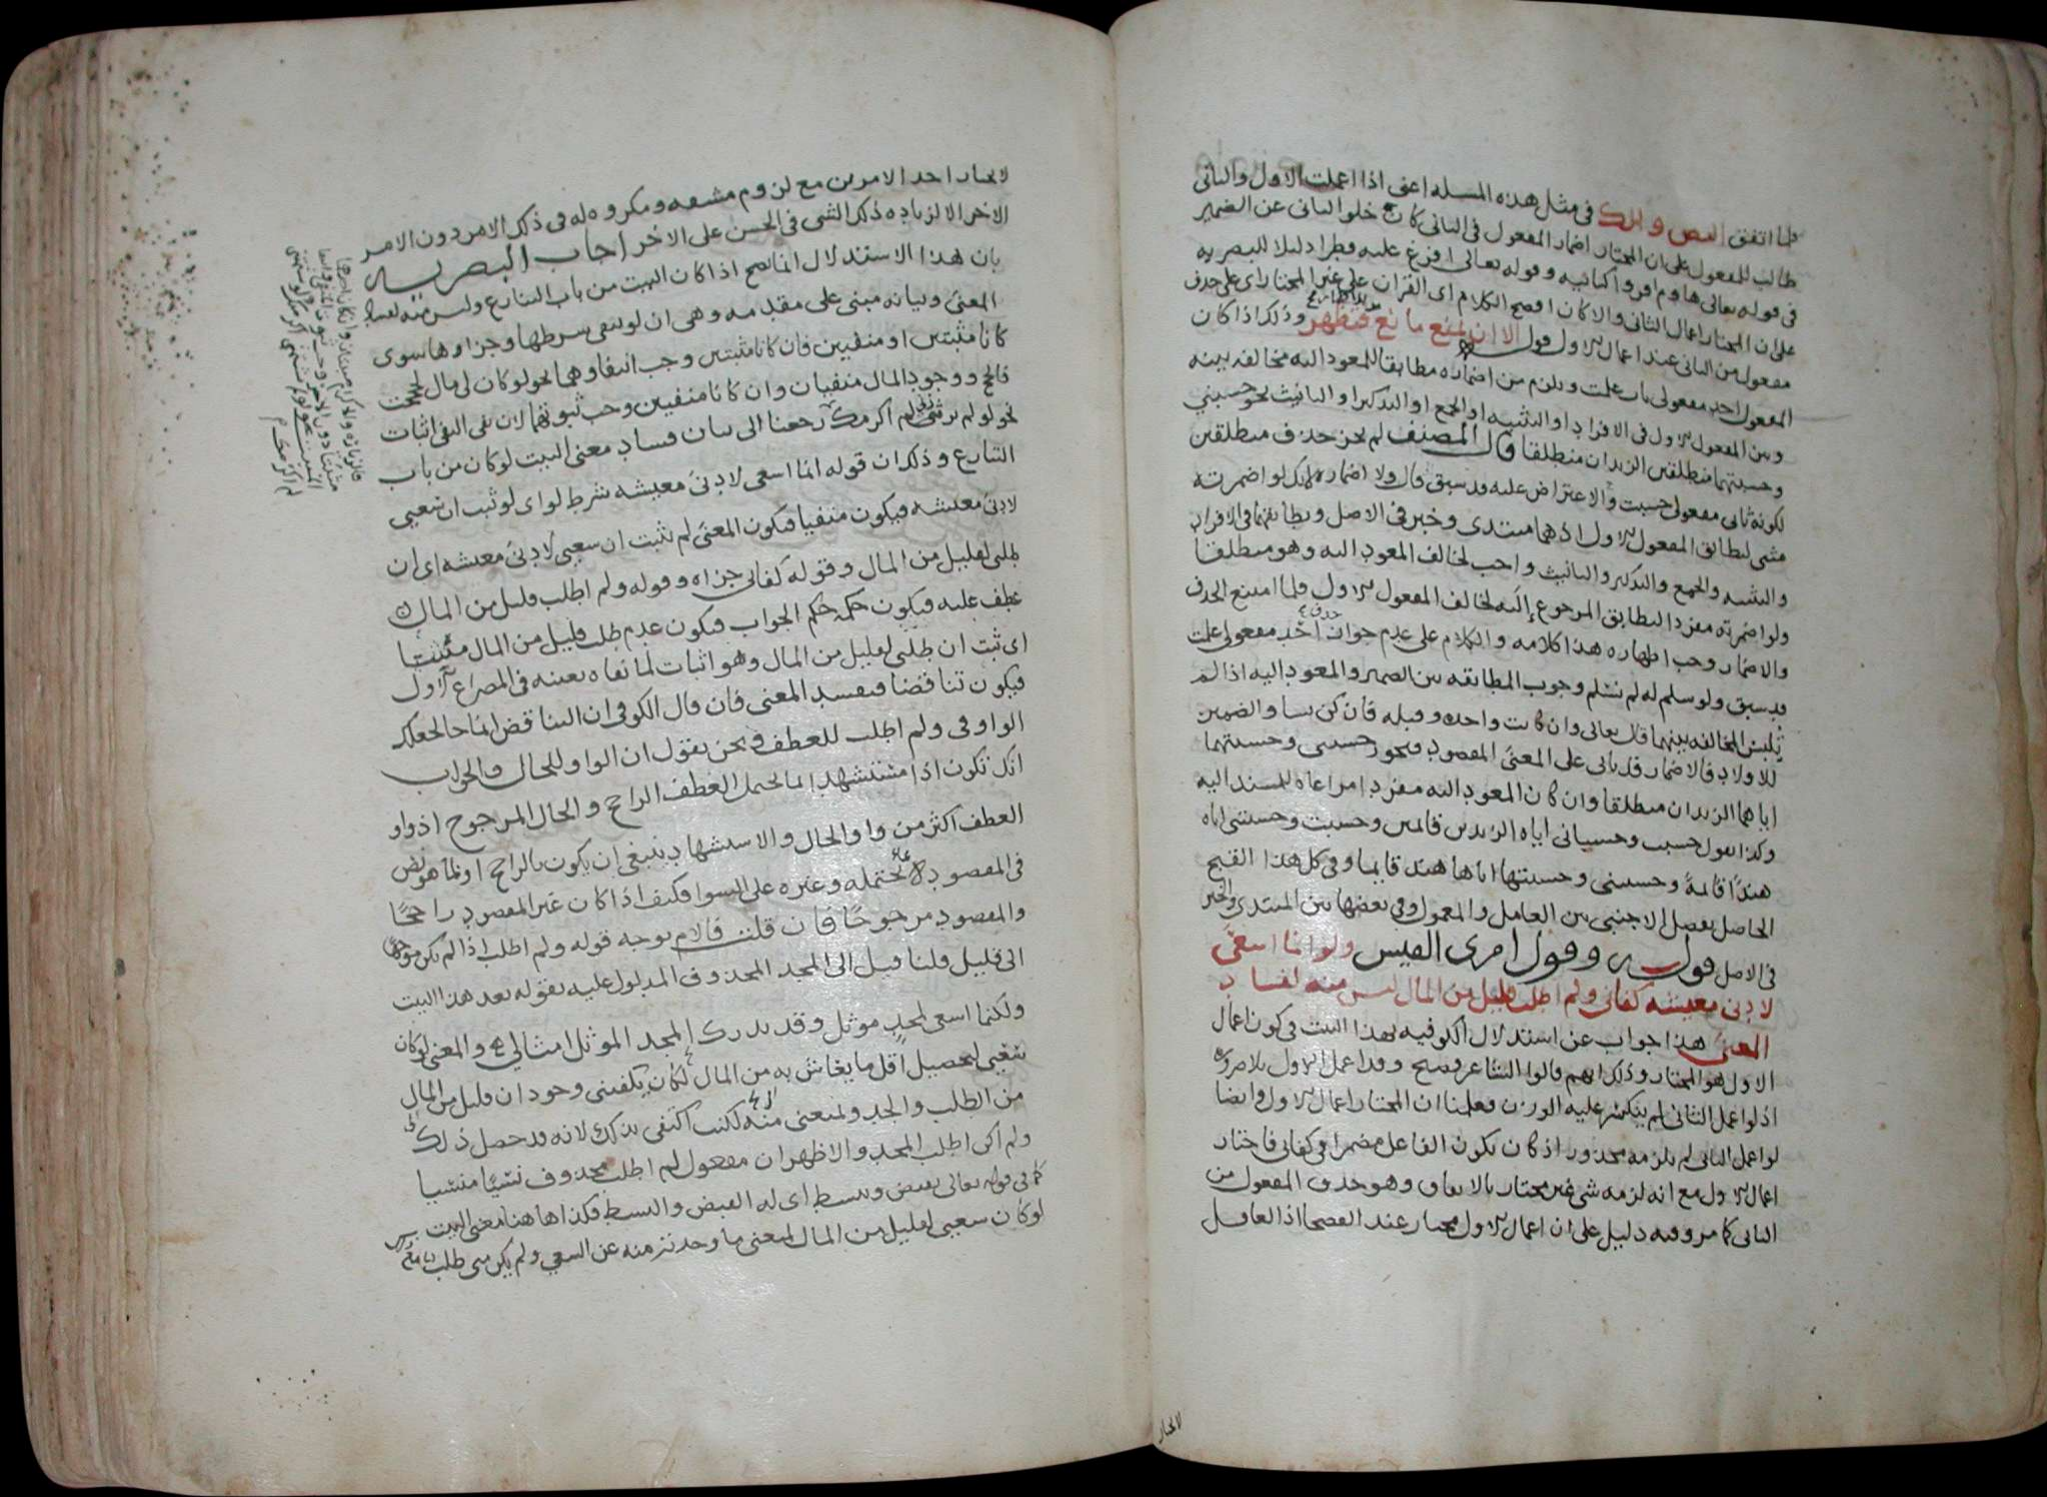 فلما اتفق النص ولك في مثل هذه المسله اعنى اذا اعملت الاول والثانى
طالب للمفعول على ان المختار اضمار المفعول فى الثانى كان خلو الثانى عن الضمير
فى قوله تعالى هاوم اقرواكتابيه وقوله تعالى افرغ عليه قطرا دليلا للبصريه
على ان المختار اعمال الثانى والا كان افصح الكلام اى القران على غير المختار اى على حذف
مفعول من الثانى عند اعمال الاول قوله الا ان يمنع مانع فيظهر وذلك اذا كان
المفعول احد مفعولى باب علمت ويلزم من اضماره مطابقا للمعود اليه مخالفه بينه
وبين المفعول الاول فى الافراد او التثنيه او الجمع او التذكير او التانيث نحو حسبني
وحسبتهما منطلقين الزيدان منطلقا قال المصنف لم يجز حذف منطلقين
لكونه ثانى مفعولى حسبت والاعتراض عليه قد سبق قال ولا اضماره لانك لو اضمرته
مثنى ليطابق المفعول الاول اذ هما مبتدى وخبر فى الاصل وتطابقهما فى الافراد
والتثنيه والجمع والتذكير والتانيث واجب لخالف المعود اليه وهو منطلقا
ولو اضمرته مفردا ليطابق المرجوع إليه لخالف المفعول الاول فلما امتنع الحذف
والاضمار وجب اظهاره هذا كلامه والكلام على عدم جواز حذف احد مفعولى علمت
قد سبق ولو سلم له لم نسلم وجوب المطابقه بين الضمير والمعود اليه اذا لم
يلبس المخالفه بينهما قال تعالى وان كانت واحده وقبله فان كن نسا والضميرين
للاولاد فالاضمار قد ياتى على المعنى المقصود فيجوز حسبنى وحسبتهما
اياهما الزيدان منطلقا وان كان المعود اليه مفردا مراعاه للمسند اليه
وكذا تقول حسبت وحسبانى اياه الزيدين قائمين وحسبت وحسبتنى اياه
هندًا قائمةً وحسبنى وحسبتها اياها هند قايما وفى كل هذا القبح
الحاصل بفصل الاجنبى بين العامل والمعمول وفى بعضها بين المبتدى والخبر
فى الاصل قوله وقول امرى القيس ولو انما اسعى
لادنى معيشه كفانى ولم اطلب قليل من المال ليس منه لفساد
المعنى هذا جواب عن استدلال الكوفيه بهذا البيت فى كون اعمال
الاول هو المختار وذلك انهم قالوا الشاعر فصيح وقد اعمل الاول بلا ضروره
اذ لو اعمل الثانى لم ينكسر عليه الوزن فعلمنا ان المختار اعمال الاول وايضا
لو اعمل الثانى لم يلزمه محذور اذ كان يكون الفاعل مضمرا فى كفانى فاختار
اعمال الاول مع انه لزمه شى غير مختار بالاتفاق وهو حذف المفعول من
الثانى كما مر وفيه دليل على ان اعمال الاول مختار عند الفصحا اذ العاقل
لا يختار
لا يختار احد الامرين مع لزوم مشقه ومكروه له فى ذلك الامر دون الامر
الاخر الا لزياده ذلك الشى فى الحسن على الاخر اجاب البصريه
بان هذا الاستدلال انما يصح اذا كان البيت من باب التنازع وليس منه لفساد
المعنى وبيانه مبنى على مقدمه وهى ان لو ينفى شرطها وجزاوها سوى
كانا مثبتين او منفيين فان كانا مثبتين وجب انتفاوهما نحو لو كان لى مال لحججت
فالحج ووجود المال منفيان وان كانا منفيين وجب ثبوتهما لان نفى النفى اثبات
نحو لو لم تزرنى لم اكرمك رجعنا الى بيان فساد معنى البيت لو كان من باب
التنازع وذلك ان قوله انما اسعى لادنى معيشه شرط لو اى لو ثبت ان سعيى
لادنى معيشه فيكون منفيا فيكون المعنى لم يثبت ان سعيى لادنى معيشه اى ان
طلبى لقليل من المال وقوله كفانى جزاه وقوله ولم اطلب قليل من المال
عطف عليه فيكون حكمه حكم الجواب فيكون عدم طلب قليل من المال منتفيا
اى ثبت ان طلبى لقليل من المال وهو اثبات لما نفاه بعينه فى المصراع الاول
فيكون تناقضا فيفسد المعنى فان قال الكوفى ان التناقض انما جا لجعلك
الواو فى ولم اطلب للعطف ونحن نقول ان الواو للحال والجواب
انك تكون اذا مستشهدا بما يحتمل العطف الراجح والحال المرجوح اذ واو
العطف اكثر من واو الحال والاستشهاد ينبغى ان يكون بالراجح او بما هو نص
فى المقصود لا بما يحتمله وغيره على السوا فكيف اذا كان غير المقصود راجحًا
والمقصود مرجوحًا فان قلت فالام توجه قوله ولم اطلب اذا لم يكن موجها
الى قليل قلنا قيل الى المجد المحذوف المدلول عليه بقوله بعد هذا البيت
ولكنما اسعى لمجدٍ موثل وقد يدرك المجد الموثل امثالي والمعنى لو كان
سعيى لتحصيل أقل ما يعاش به من المال لكان يكفينى وجدان قليل من المال
من الطلب والجد ويمنعنى منه لكنت اكتفى بذلك لانه قد حصل ذلك
ولم اكن اطلب المجد والاظهر ان مفعول لم اطلب محذوف نسيًا منسيا
كما فى قوله تعالى يقبض ويبسط اى له القبض والبسط فكذا هاهنا معنى البيت
لو كان سعيى لقليل من المال لمنعنى ما وجدته منه عن السعي ولم يكن منى طلب